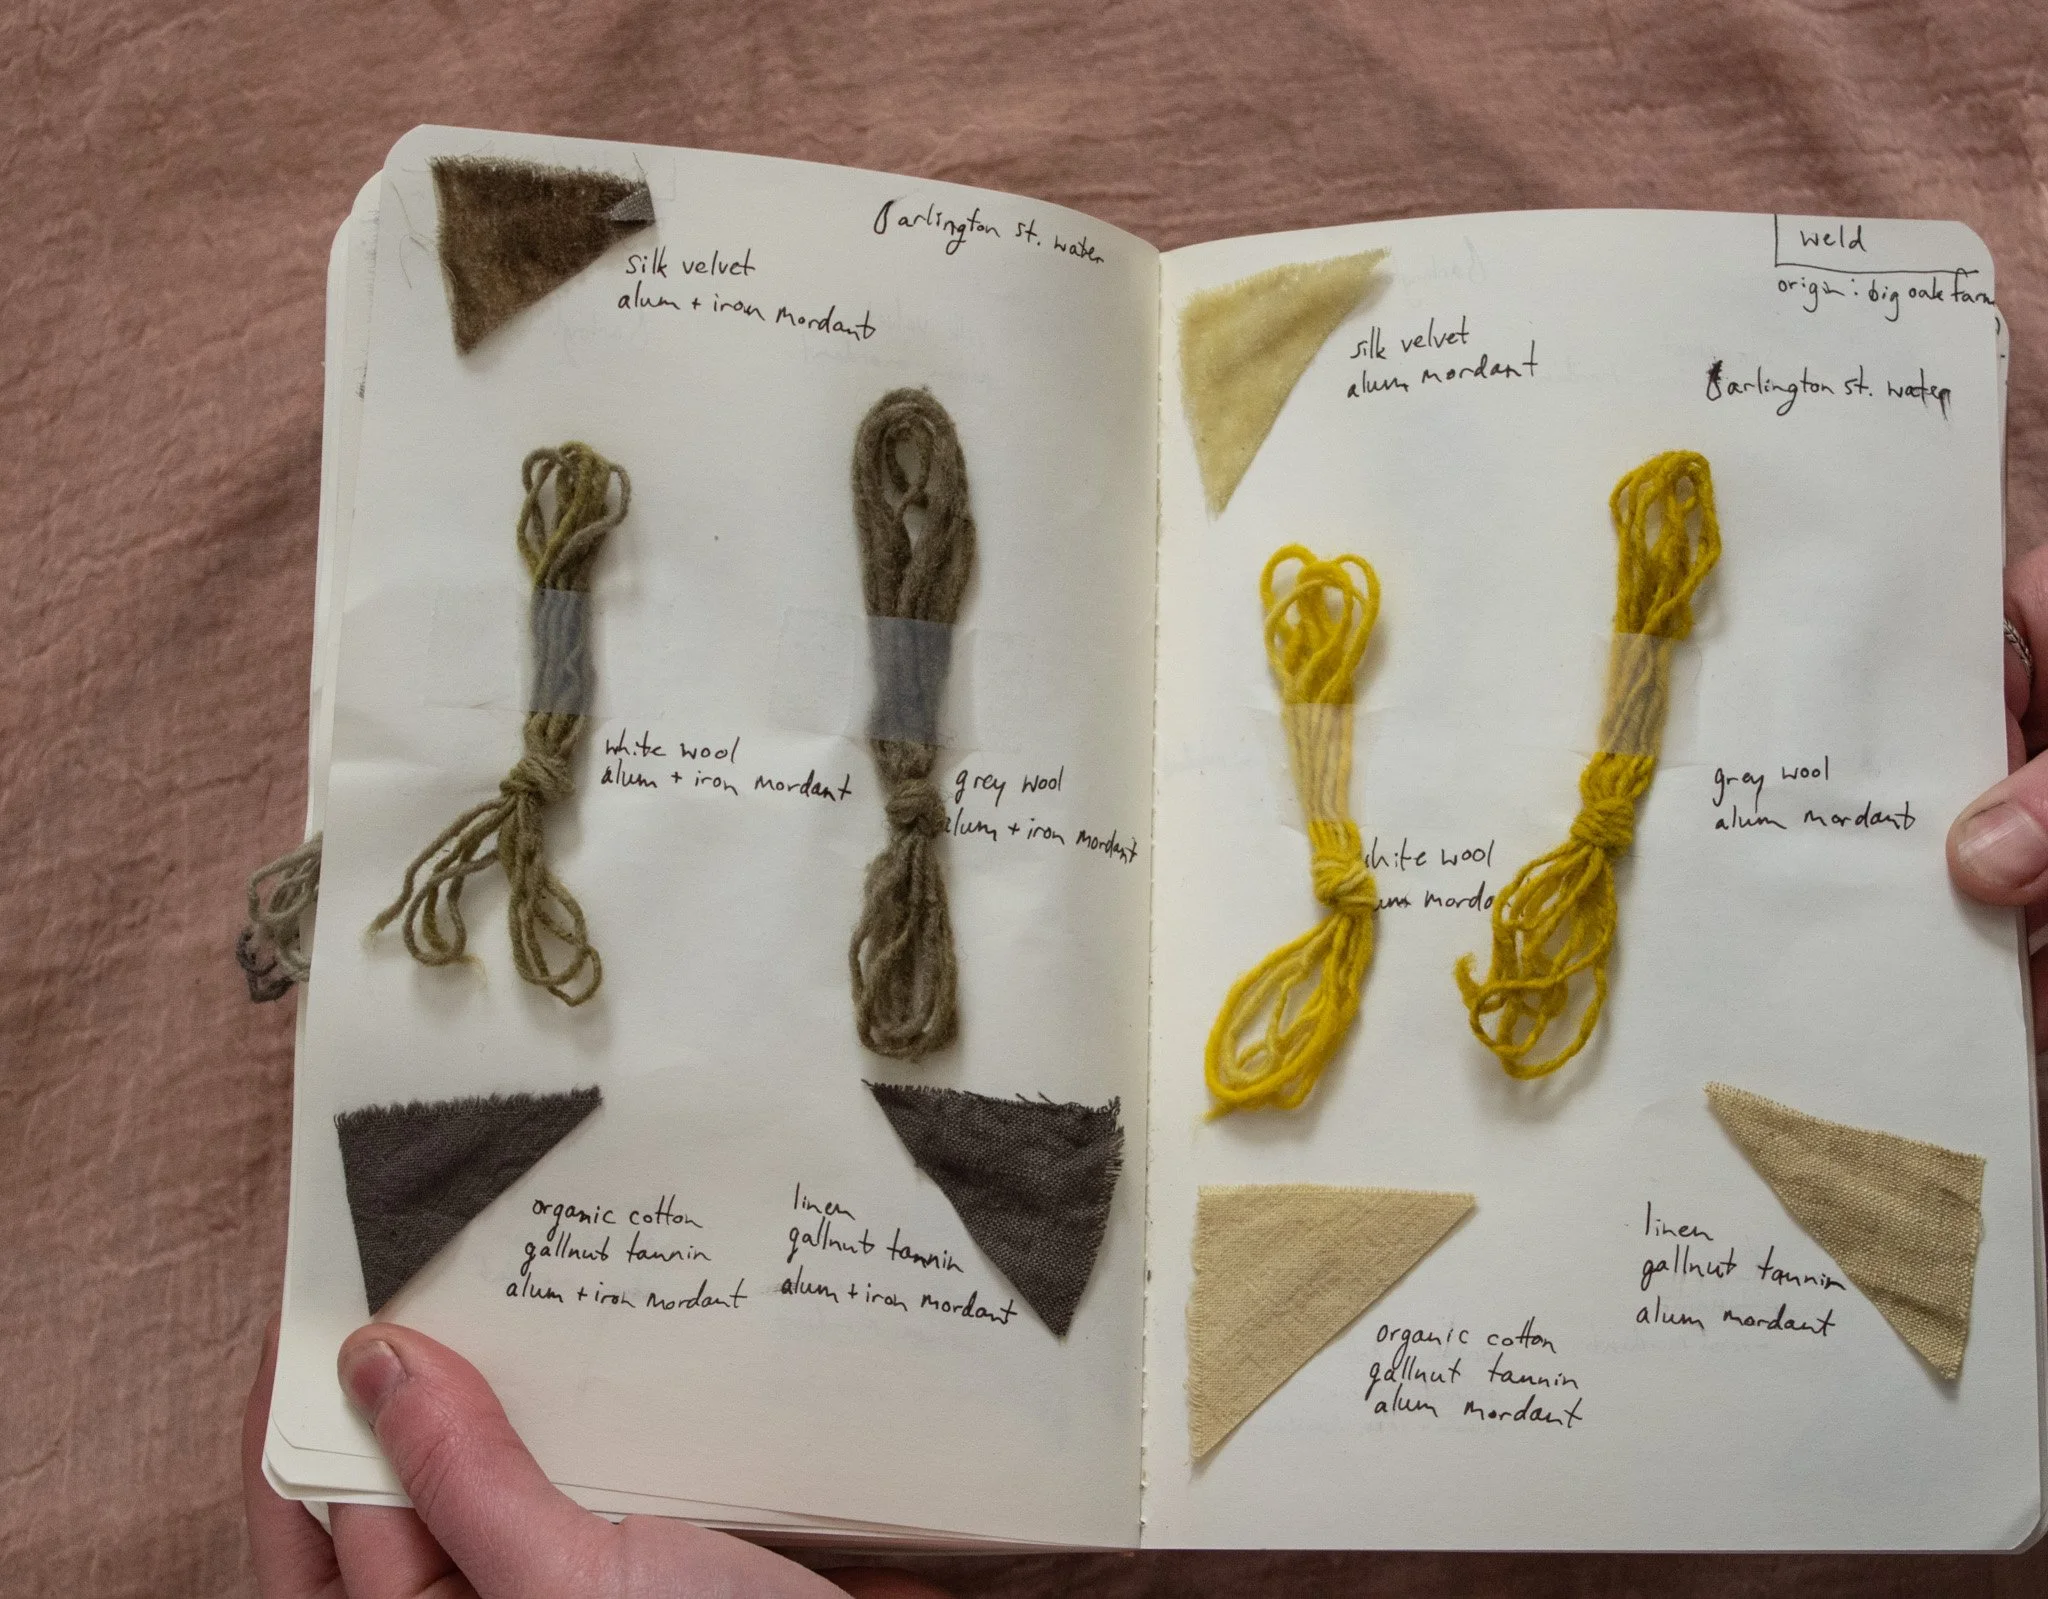 silk velvet
alum + iron mordant
arlington st. water
white wool
alum + iron mordant
grey wool
alum + iron mordant
organic cotton
gallnut tannin
alum + iron mordant
linen
gallnut tannin
alum + iron mordant
weld
origin: big oak farm
silk velvet
alum mordant
arlington st. water
hite wool
grey wool
alum mordant
organic cotton
gallnut tannin
alum mordant
linen
gallnut tannin
alum mordant